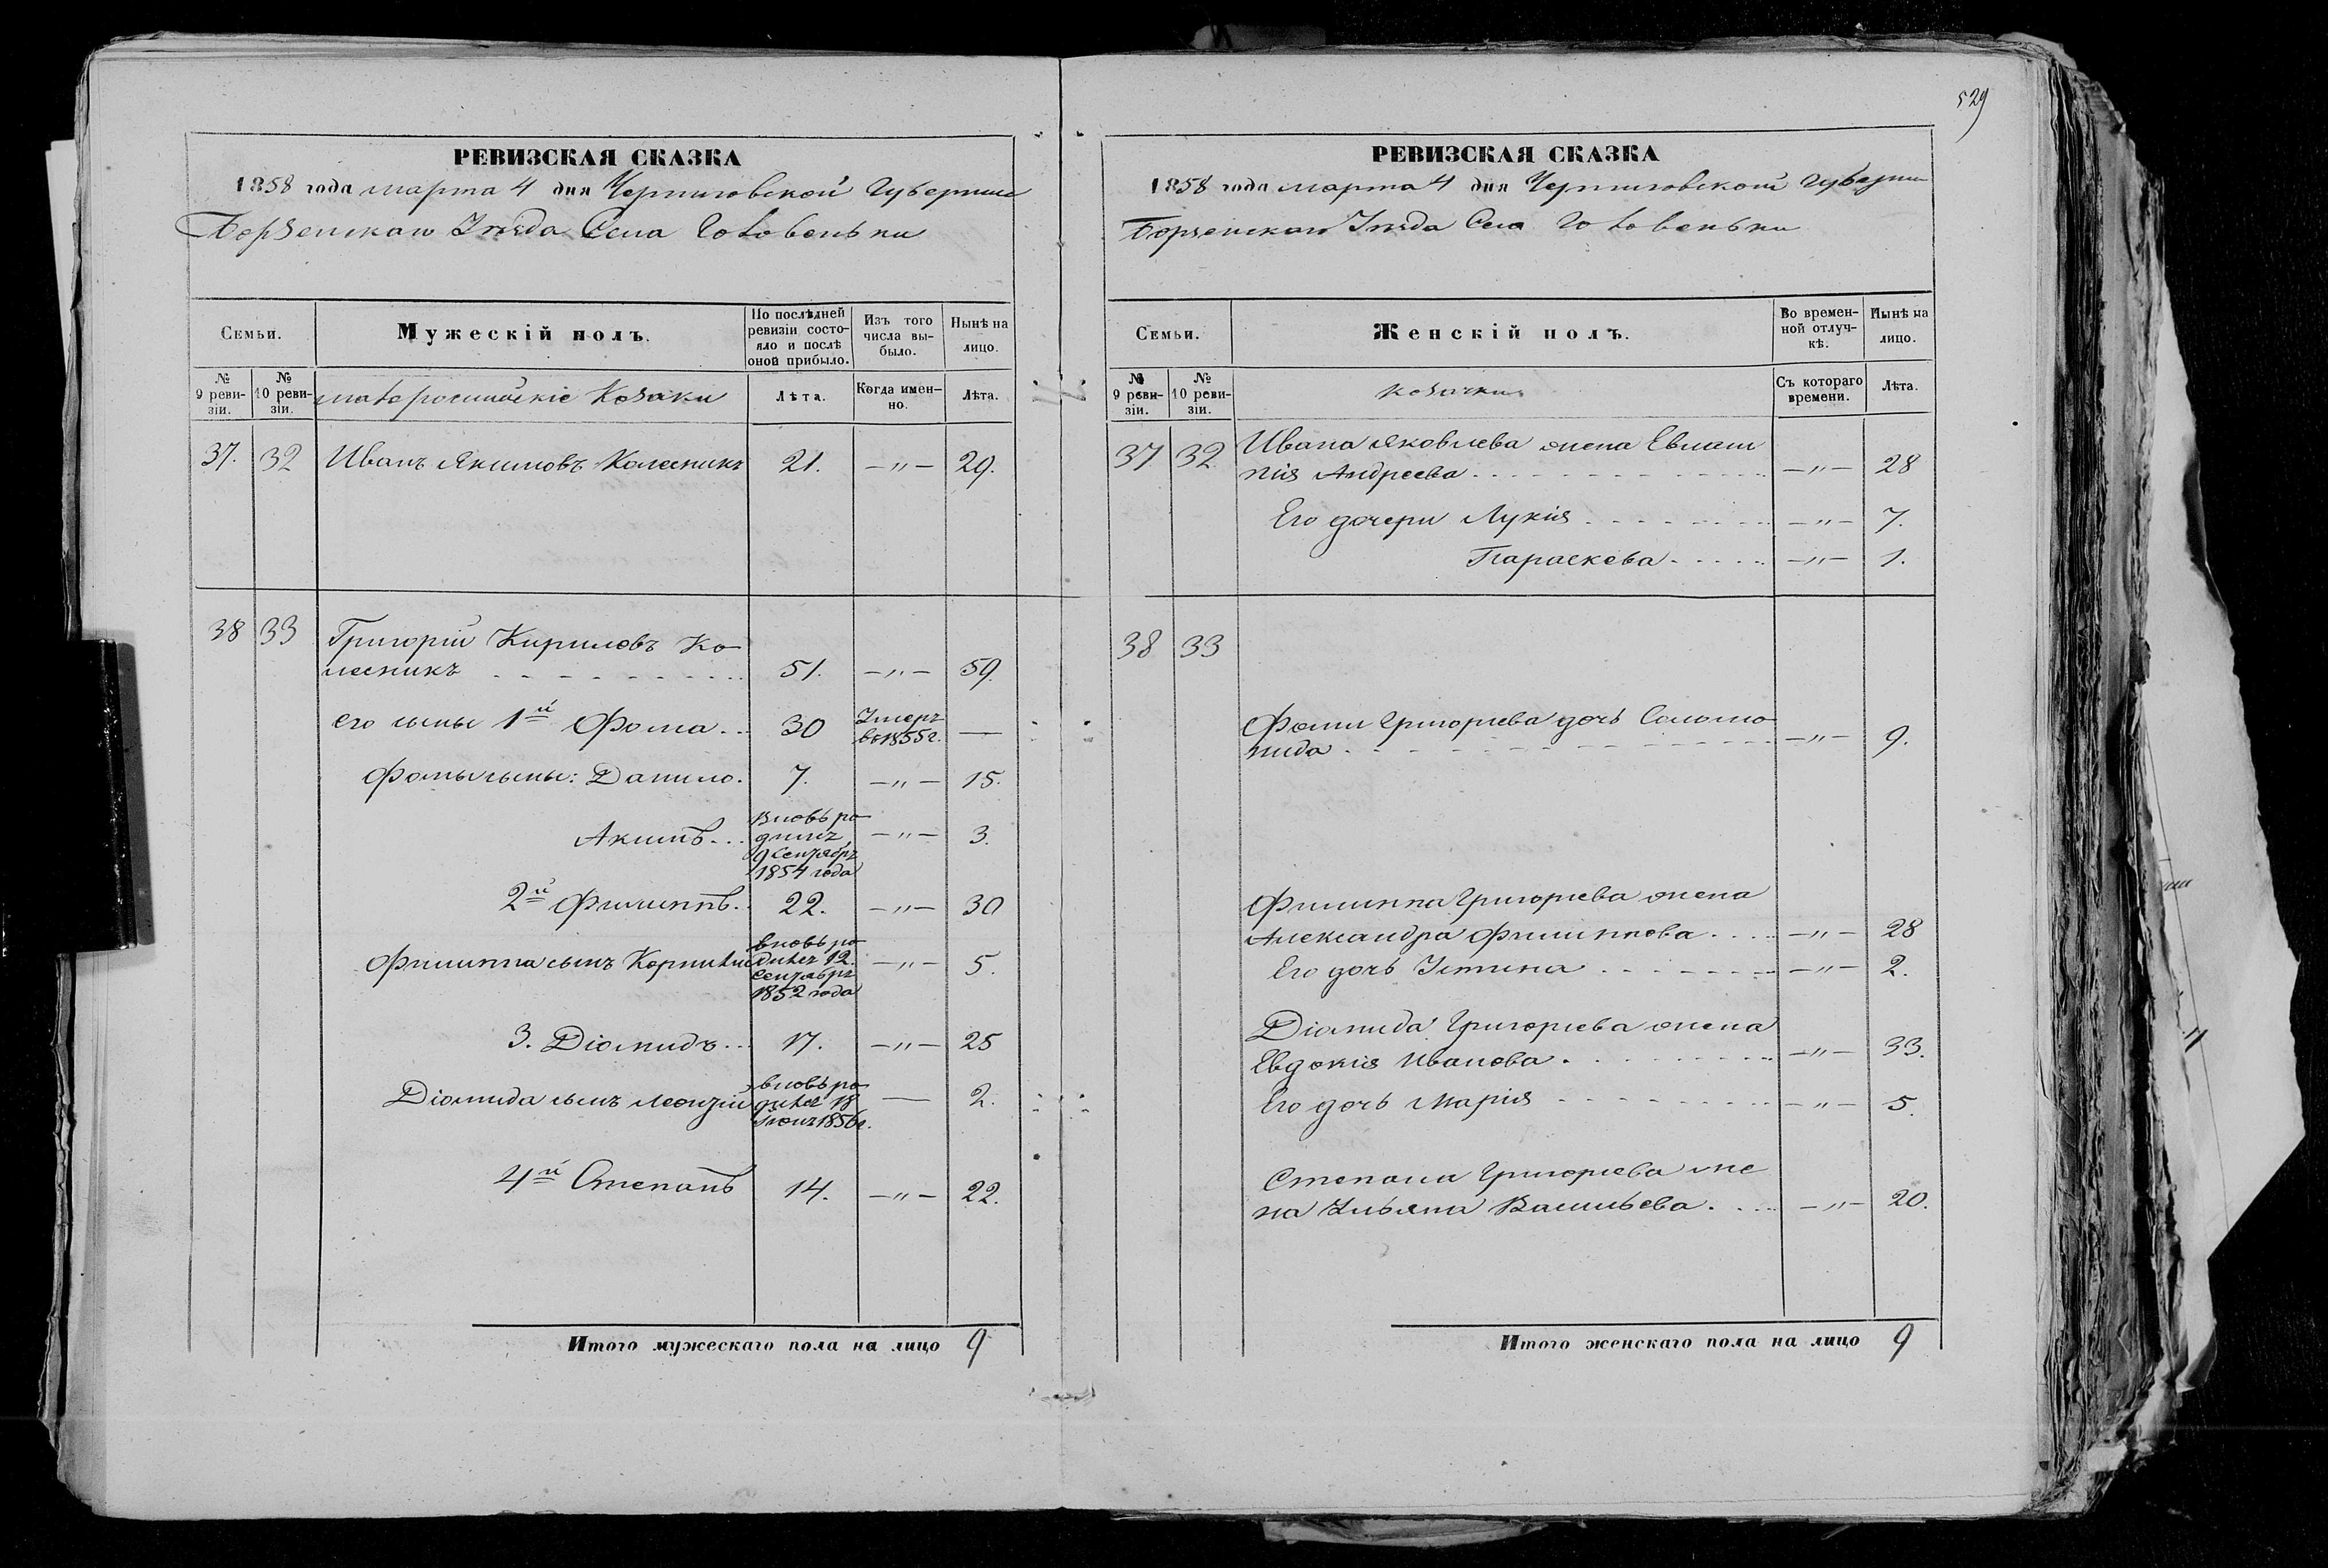 529
РЕВИЗСКАЯ СКАЗКА
1858 года марта 4 дня Черниговской Губернии
Борзенскаго Уѣзда Села Головеньки
Семьи.
Мужескій полъ.
По послѣдней ревизіи состояло и послѣ оной прибыло.
Изъ того числа выбыло.
Нынѣ на лицо.
№ 9 ревизіи.
№ 10 ревизіи.
малороссійскіе Козаки
Лѣта.
Когда именно.
Лѣта.
37. 32 Иванъ Якимовъ Колесникъ 21. —"— 29.
38 33 Григорій Кириловъ Ко
лесникъ 51. —"— 59.
его сыны 1й Фома 30 Умеръ во 1855 г. —
Фомы сыны: Данило. 7. —"— 15.
Акимъ вновь родился 9 Сентября 1854 года —"— 3.
2й Филиппъ. 22. —"— 30
Филиппа сынъ Корнилій вновь родился 12. Сентября 1852 года —"— 5.
3. Діомидъ 17. —"— 25
Діомида сынъ Леонтій вновь родился 18 Іюня 1856 г. — 2.
4й Степанъ 14. —"— 22.
Итого мужескаго пола на лицо 9
РЕВИЗСКАЯ СКАЗКА
1858 года марта 4 дня Черниговской Губерни
Борзенскаго Уѣзда Села Головеньки
Семьи.
Женскій полъ.
Во временной отлучкѣ.
Нынѣ на лицо.
№ 9 ревизіи.
№ 10 ревизіи.
козачки
Съ котораго времени.
Лѣта.
37 32 Ивана Яковлева жена Евлам
пія Андреева —"— 28
Его дочери Лукія —"— 7.
Параскева —"— 1.
38 33
Фомы Григорьева дочь Соломо
нида —"— 9.
Филиппа Григорьева жена
Александра Филиппова —"— 28
Его дочь Устина —"— 2.
Діомида Григорьева жена
Евдокія Иванова —"— 33.
Его дочь Марія —"— 5.
Степана Григорьева же
на Ульяна Васильева —"— 20.
Итого женскаго пола на лицо 9